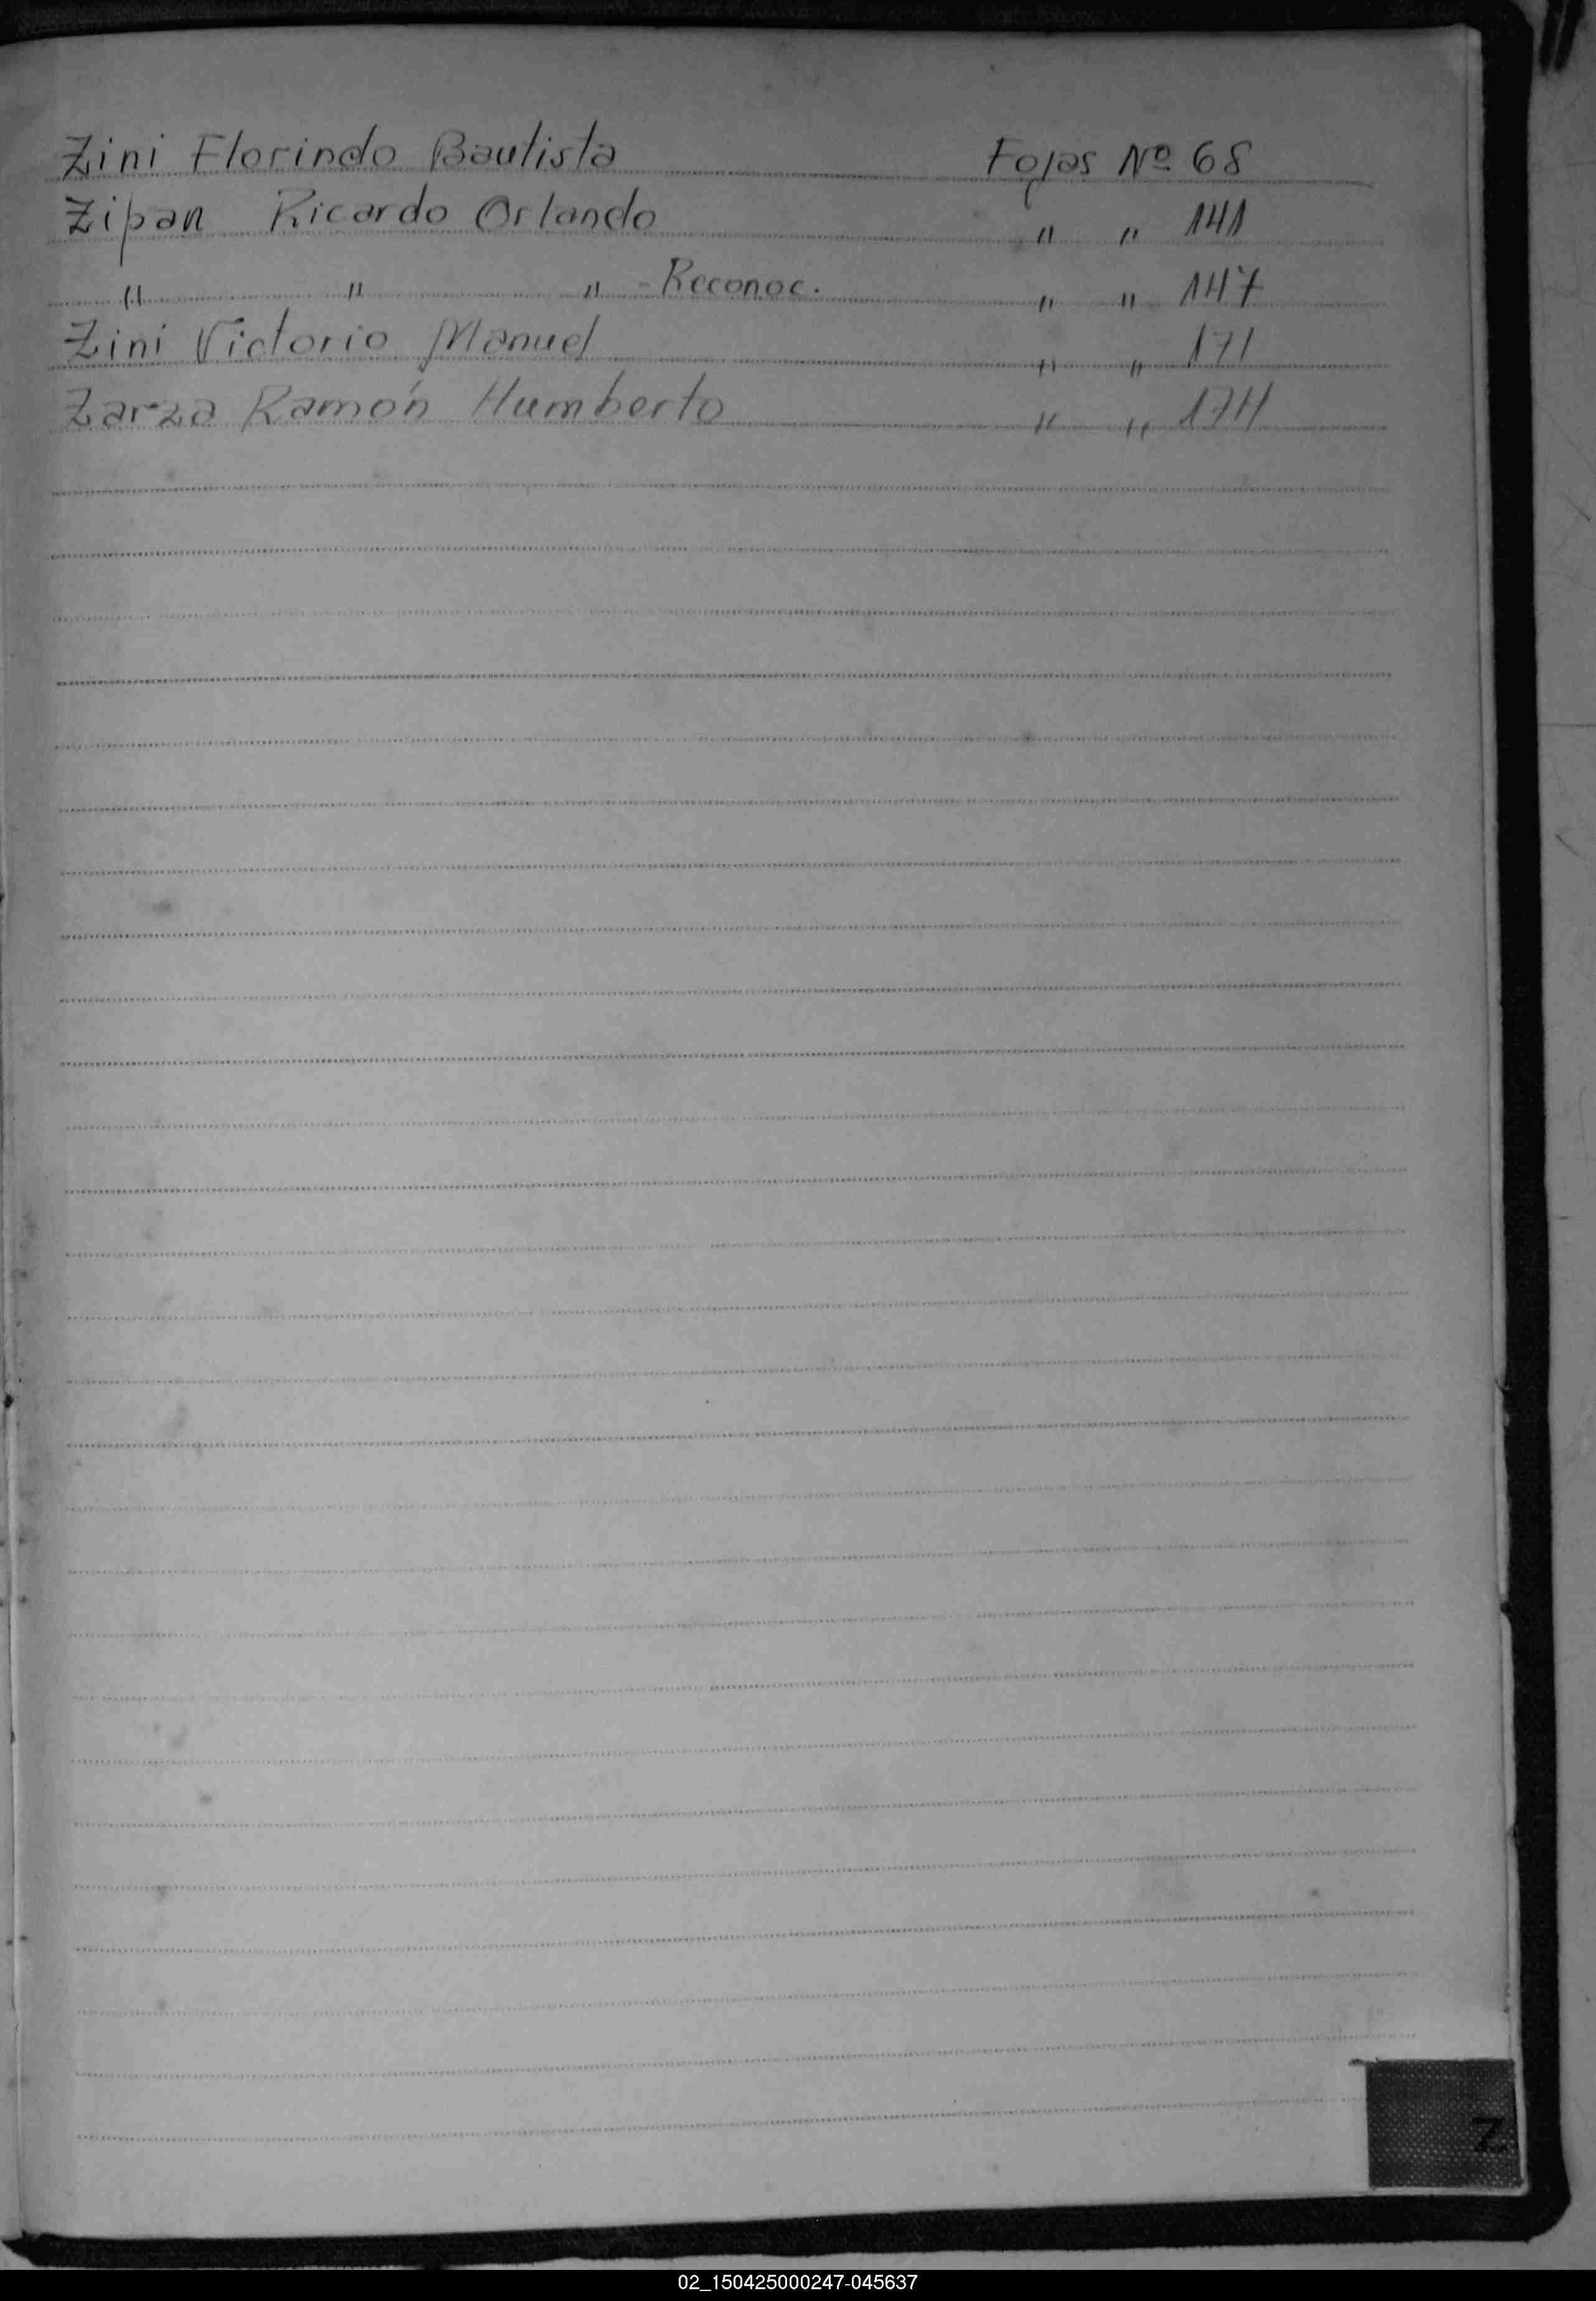 Zini Florindo Bautista Fojas Nº 68
Zipan Ricardo Orlando " " 141
" " " - Reconoc. " " 147
Zini Victorio Manuel " " 171
Zarza Ramón Humberto " " 174
Z
02_150425000247-045637